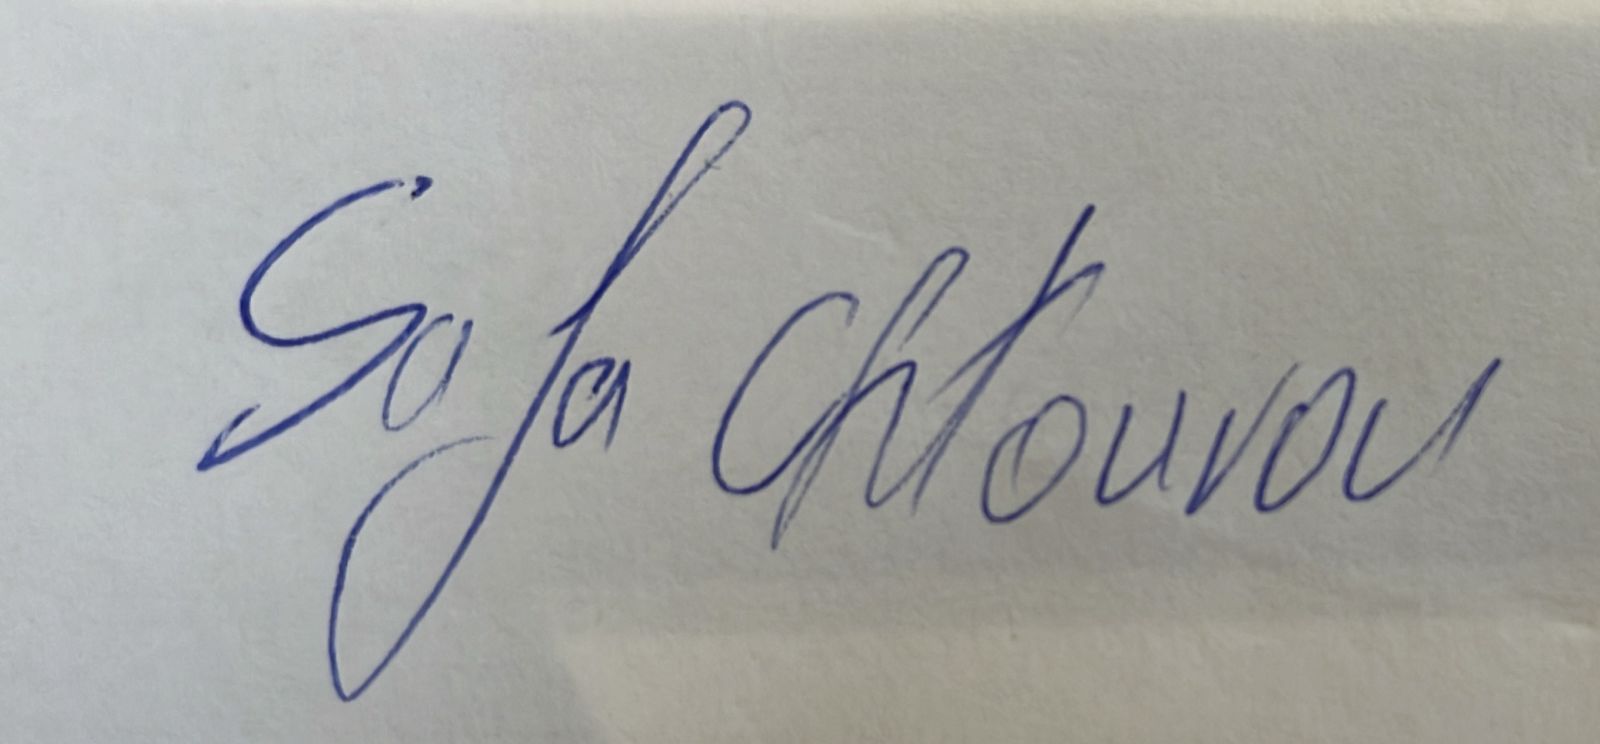 Safa Chtourou